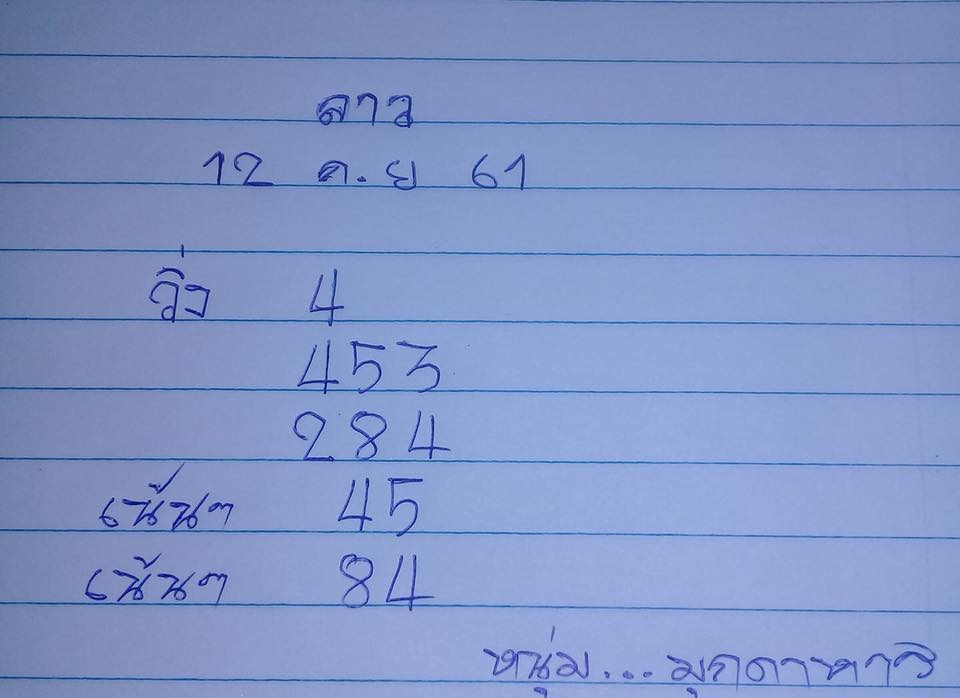 ลาว
12 ก.ย 61
วิ่ง 4
453
284
เน้นๆ 45
เน้นๆ 84
หนุ่ม... มุกดาหาร